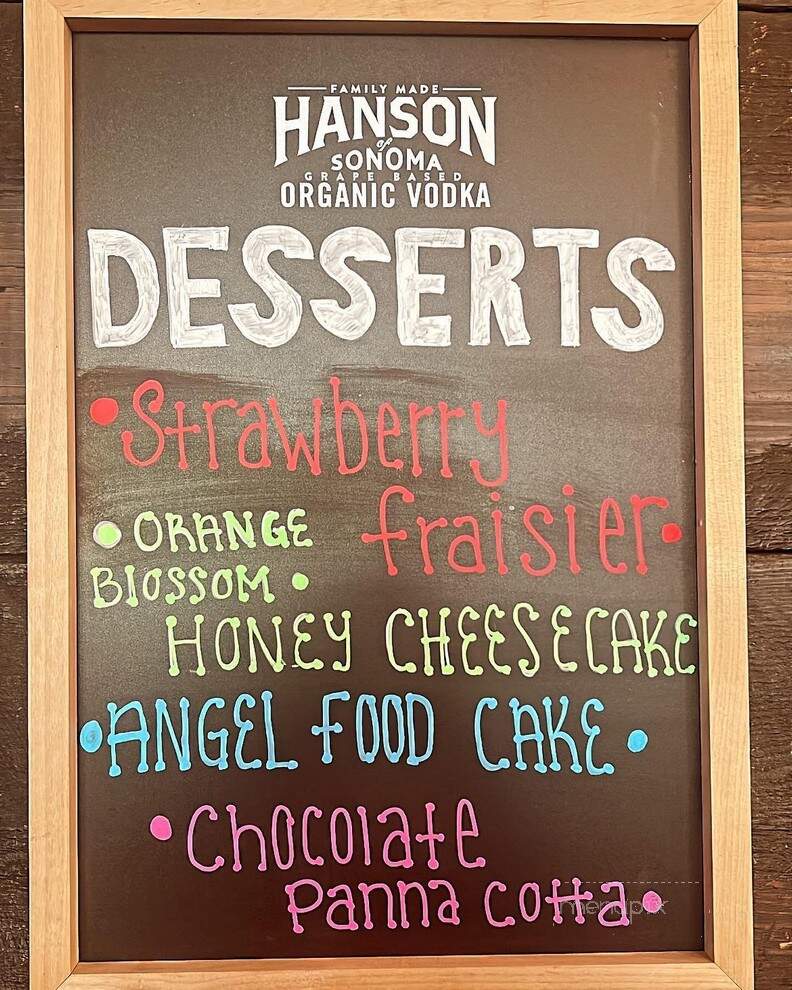 FAMILY MADE
HANSON
of
SONOMA
GRAPE BASED
ORGANIC VODKA
DESSERTS
• Strawberry
fraisier •
• ORANGE
BLOSSOM •
HONEY CHEESECAKE
• ANGEL FOOD CAKE •
• Chocolate
Panna cotta •
menupix